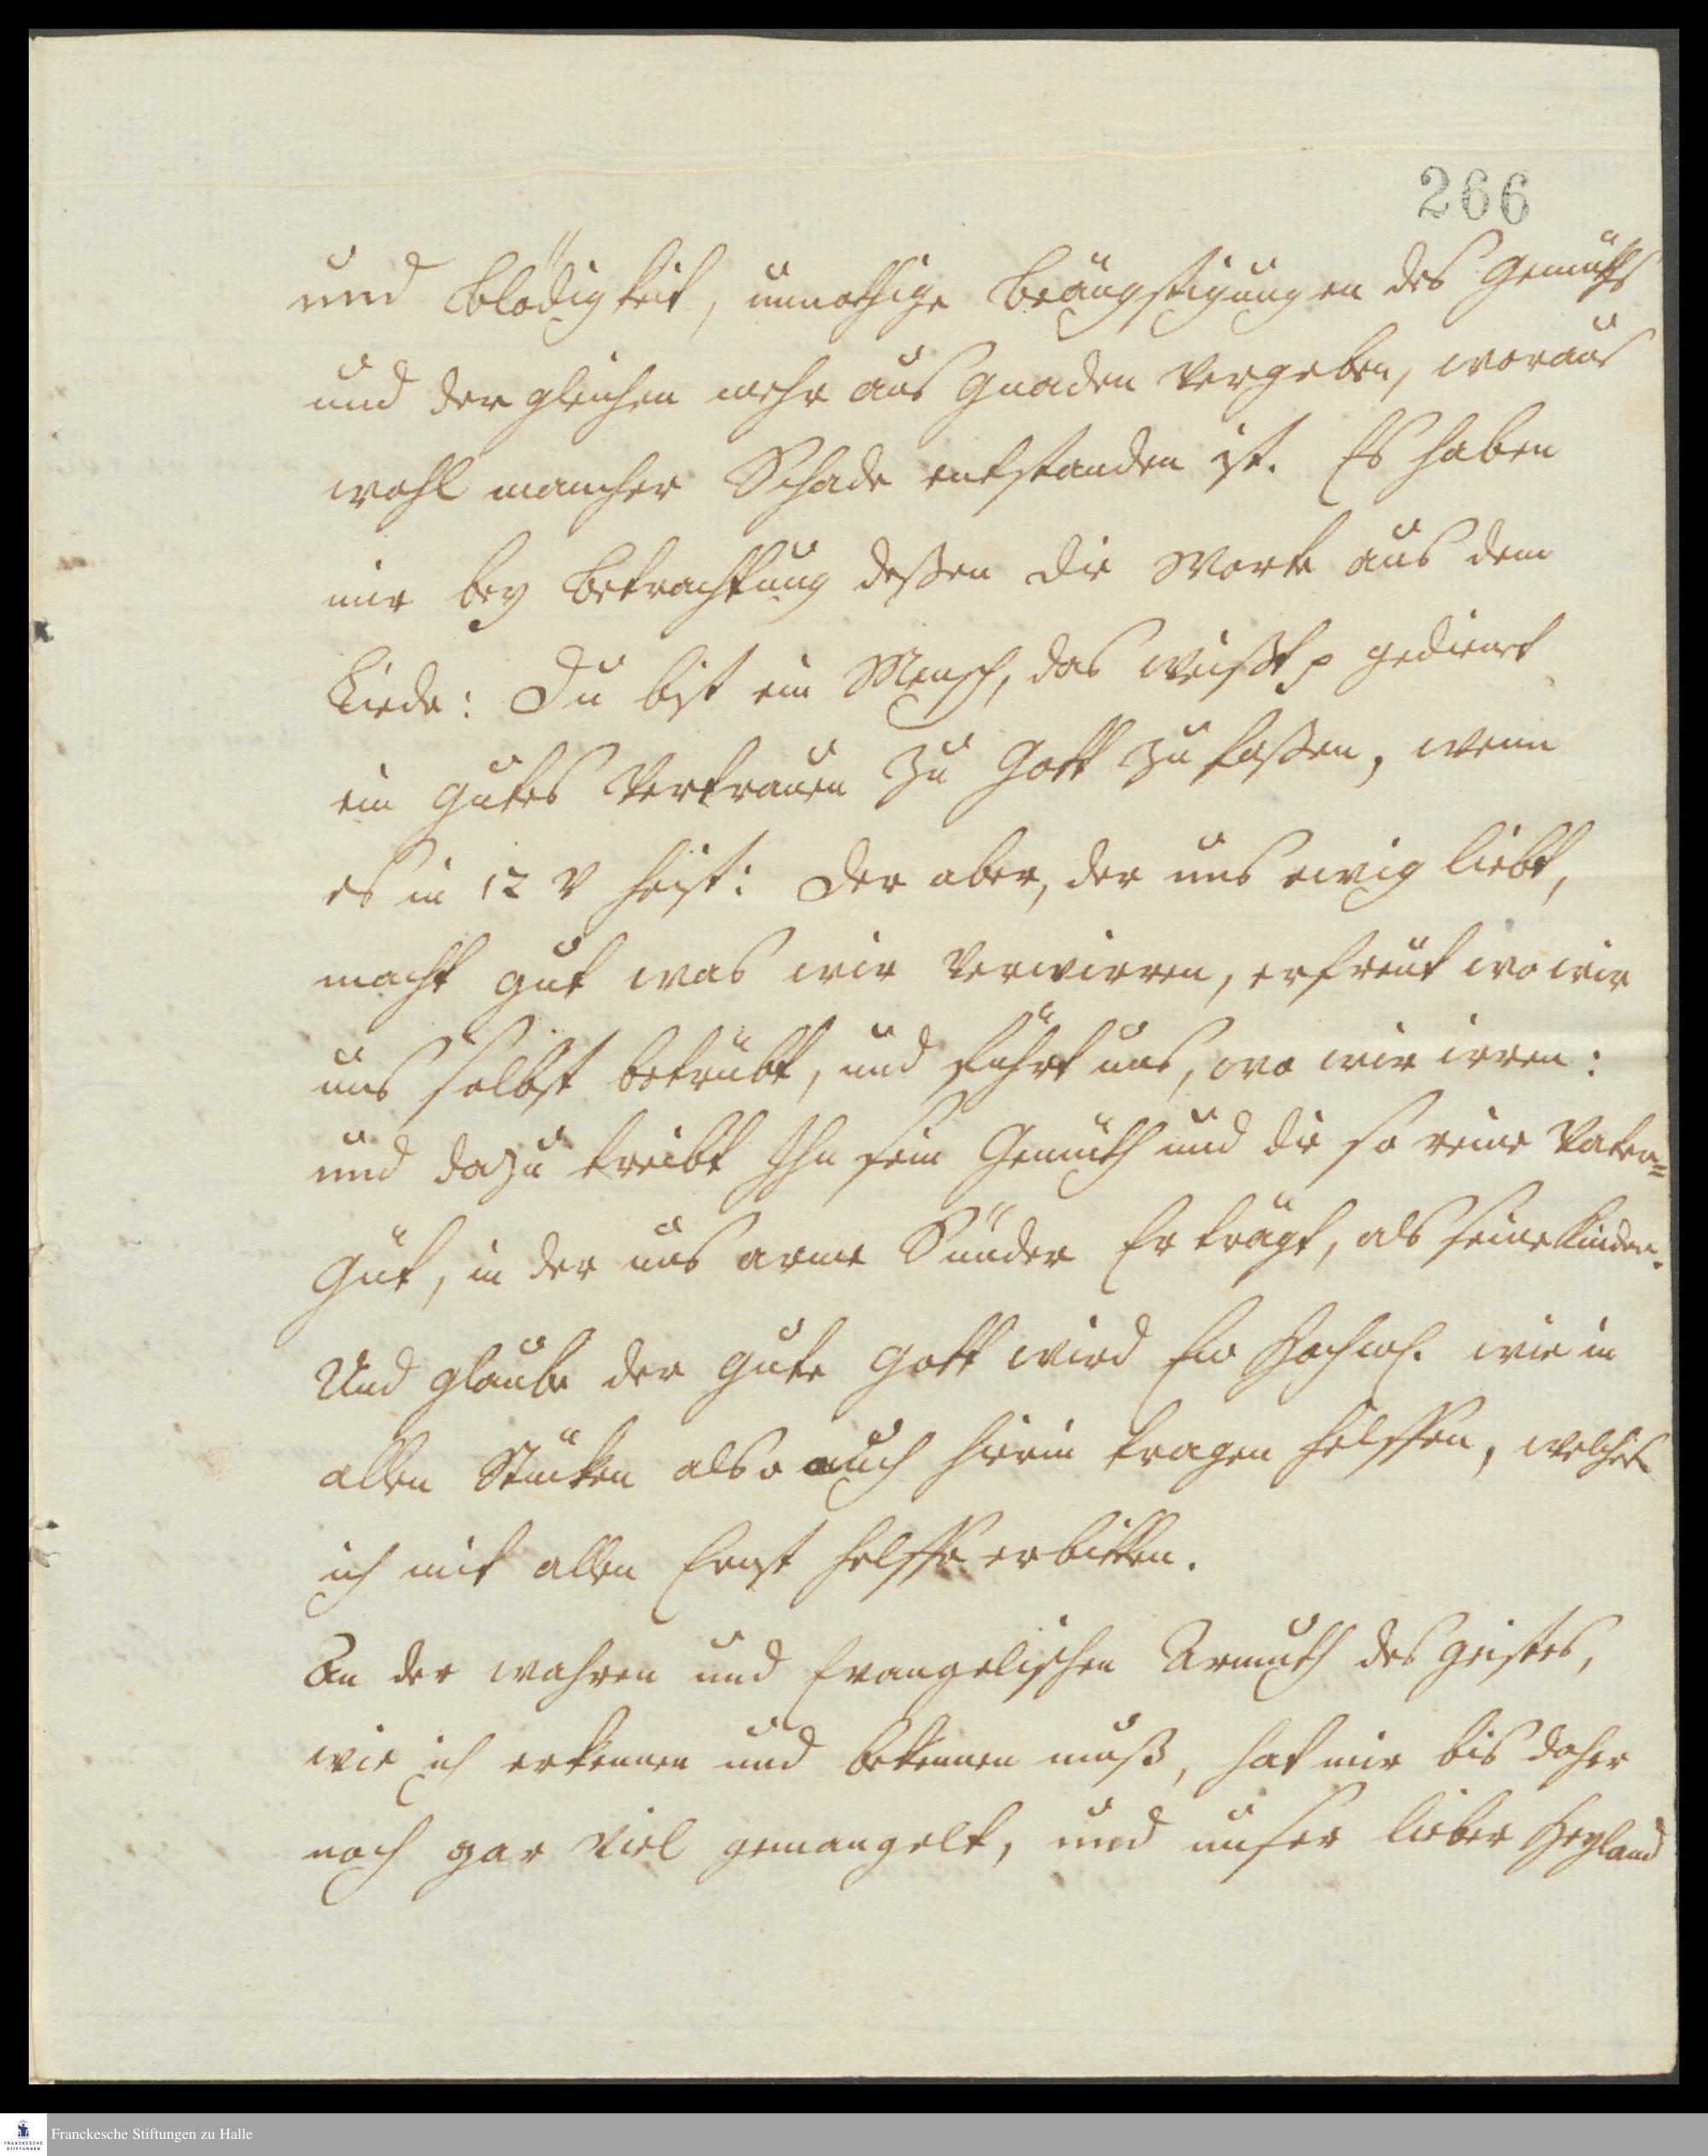 266
und Blödigkeit, unnothige Beängstigungen des Gemüths
und der gleichen mehr aus Gnaden vergeben, woraus
wohl mancher Schade entstanden ist. Es haben
mir bey Betrachtung deßen die Worte aus dem
Liede: Du bist ein Mensch, das weißt p gedienet
ein gutes Vertrauen zu Gott zu faßen, wenn
es in 12 V heist: Der aber, der uns ewig liebt,
macht gut was wir verwirren, erfreut wo wir
uns selbst betrübt, und führt uns, wo wir irren:
und dazu treibt Ihn sein Gemüth und die so reine Vater=
Güt, in der uns arme Sünder Er trägt, als seine Kinder.
Und glaube der gute Gott wird Ew Hochw. wie in
allen Stücken also auch hierin tragen helffen, welches
ich mit allen Ernst helffe erbitten.
An der wahren und Evangelischen Armuth des Geistes,
wie ich erkennen und bekennen muß, hat mir bis daher
noch gar viel gemangelt, und unser lieber Heyland
Franckesche Stiftungen zu Halle
FRANCKESCHE
STIFTUNGEN